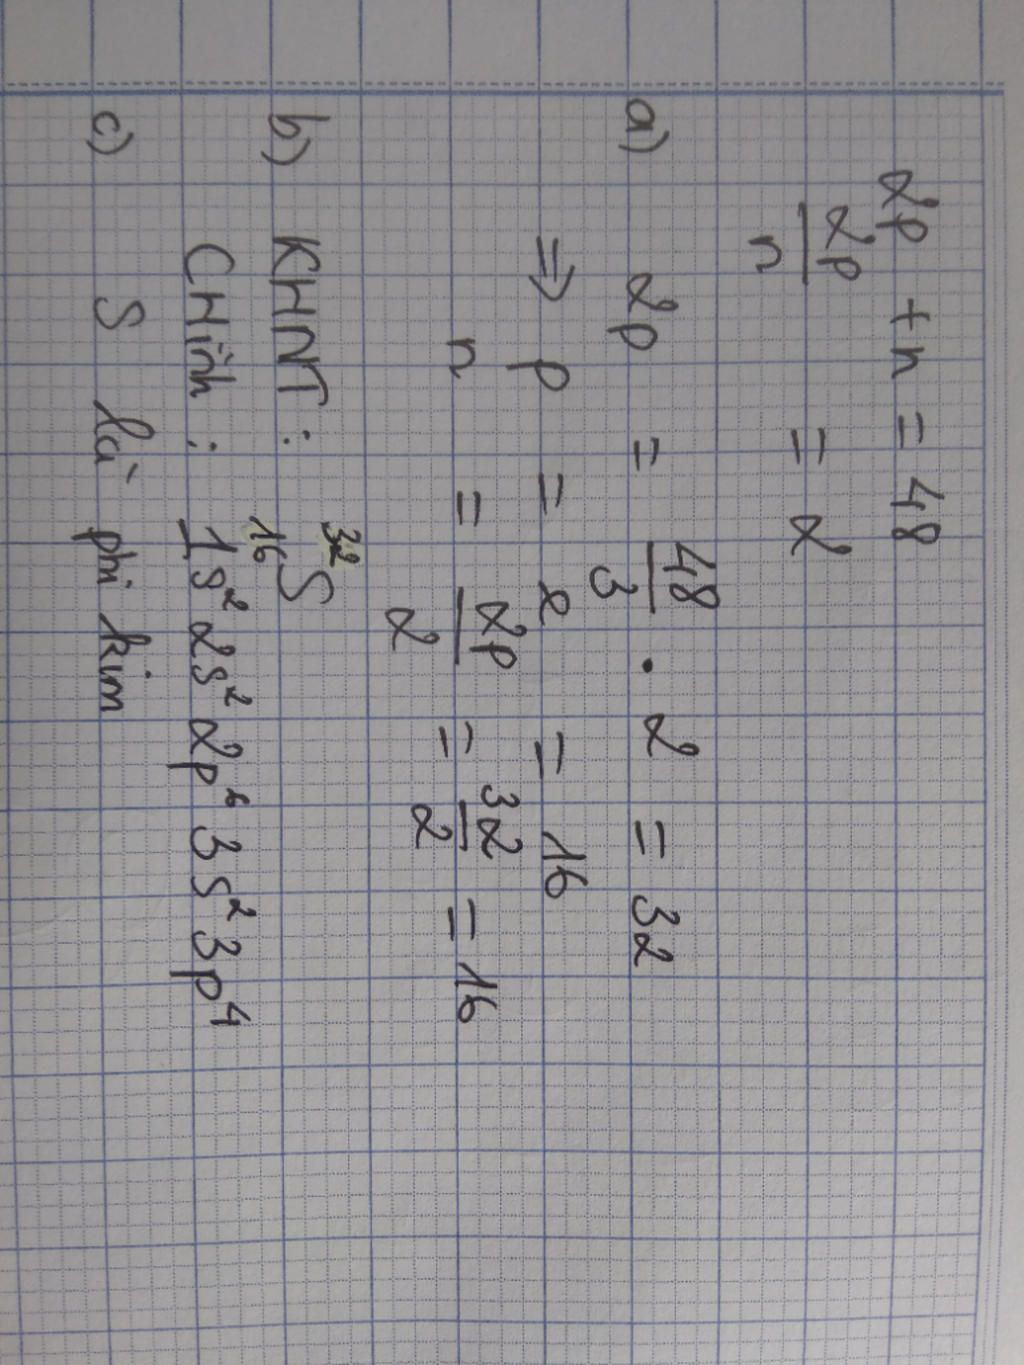 2p + n = 48
2p/n = 2
a) 2p = 48/3 . 2 = 32
=> p = e = 16
n = 2p/2 = 32/2 = 16
b) KHNT : ³²₁₆S
CHình : 1s² 2s² 2p⁶ 3s² 3p⁴
c) S là phi kim